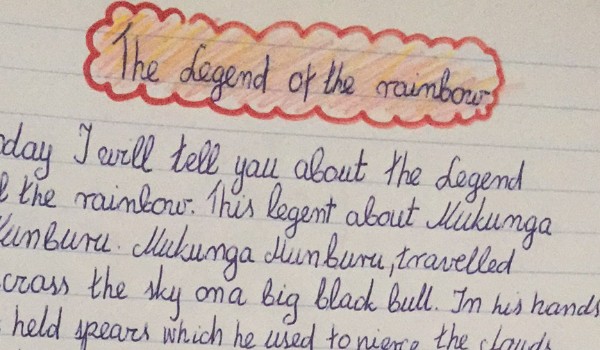 The Legend of the rainbow
day I will tell you about the Legend
the rainbow. This legent about Mukunga
Munburu. Mukunga Munburu, travelled
cross the sky on a big black bull. In his hands
held spears which he used to pierce the clouds